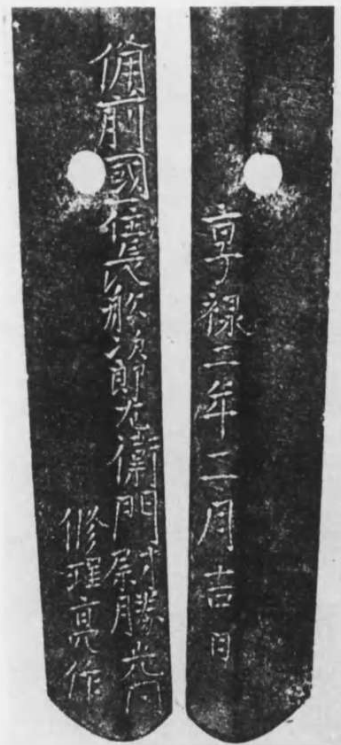 享禄二年二月吉日
備前國住長舩次郎左衛門尉勝光同
修理亮作